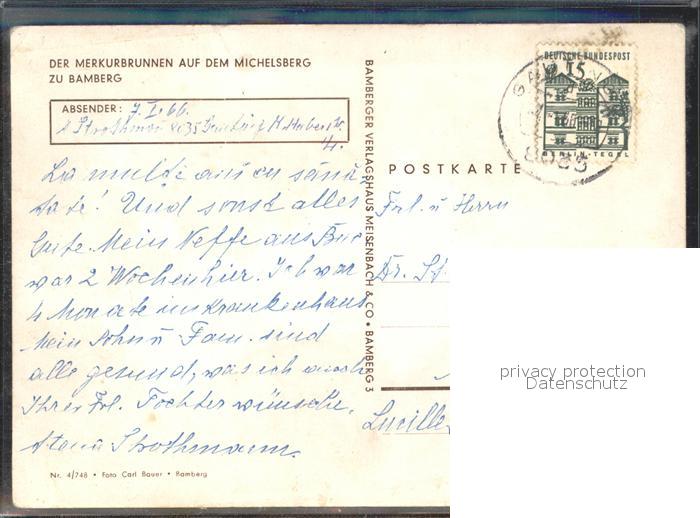 DER MERKURBRUNNEN AUF DEM MICHELSBERG
ZU BAMBERG
ABSENDER: 7. I. 66.
Strothmann 8035 Gauting
4.
La multi ani cu sănă-
tate! Und sonst alles
Gute. Mein Neffe aus Buc
war 2 Wochen hier. Ich war
4 Monate im Krankenhaus
Mein Sohn u Fam. sind
alle gesund, was ich auch
Ihrer Frl. Tochter wünsche.
Strothmann.
Nr. 4/748 • Foto Carl Bauer • Bamberg
BAMBERGER VERLAGSHAUS MEISENBACH & CO • BAMBERG 3
DEUTSCHE BUNDESPOST
15
BERLIN-TEGEL
GAUTING
8035
POSTKARTE
Frl. u Herrn
Dr. St
Lucille
privacy protection
Datenschutz